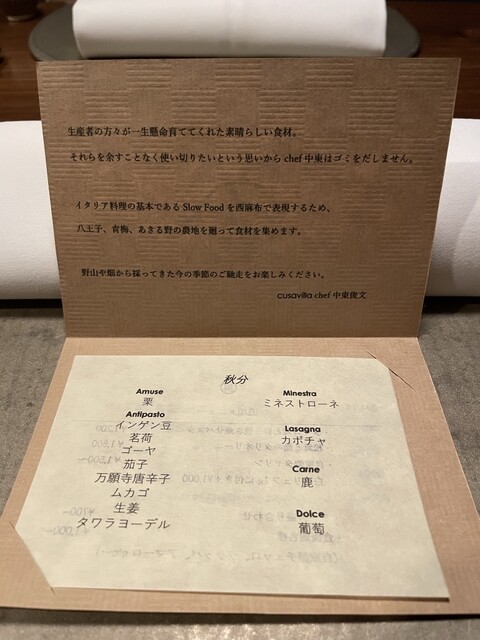 生産者の方々が一生懸命育ててくれた素晴らしい食材。
それらを余すことなく使い切りたいという思いから chef 中東はゴミをだしません。
イタリア料理の基本である Slow Food を西麻布で表現するため、
八王子、青梅、あきる野の農地を廻って食材を集めます。
野山や畑から採ってきた今の季節のご馳走をお楽しみください。
cusavilla chef 中東俊文
秋分
Amuse
栗
Antipasto
インゲン豆
茗荷
ゴーヤ
茄子
万願寺唐辛子
ムカゴ
生姜
タワラヨーデル
Minestra
ミネストローネ
Lasagna
カボチャ
Carne
鹿
Dolce
葡萄